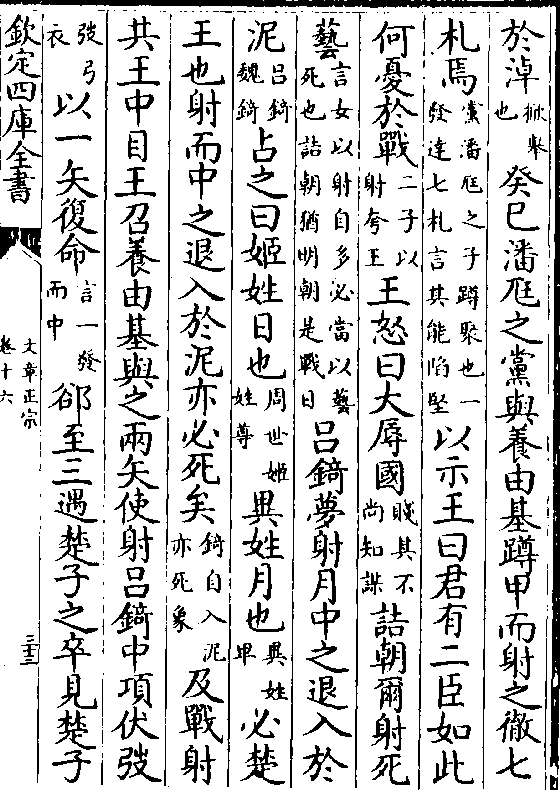 於淖掀舉也癸巳潘尫之黨與養由基蹲甲而射之徹七
札焉黨潘尫之子蹲聚也一發達七札言其能陷堅以示王曰君有二臣如此
何憂於戰二子以射夸王王怒曰大辱國賤其不尚知謀詰朝爾射死
藝言女以射自多必當以藝死也詰朝猶明朝是戰日呂錡夢射月中之退入於
泥呂錡魏錡占之曰姬姓日也周世姬姓尊異姓月也異姓卑必楚
王也射而中之退入於泥亦必死矣錡自入泥亦死象及戰射
共王中目王召養由基與之兩矢使射呂錡中項伏弢
弢弓衣以一矢復命言一發而中郤至三遇楚子之卒見楚子
欽定四庫全書
文章正宗
卷十六